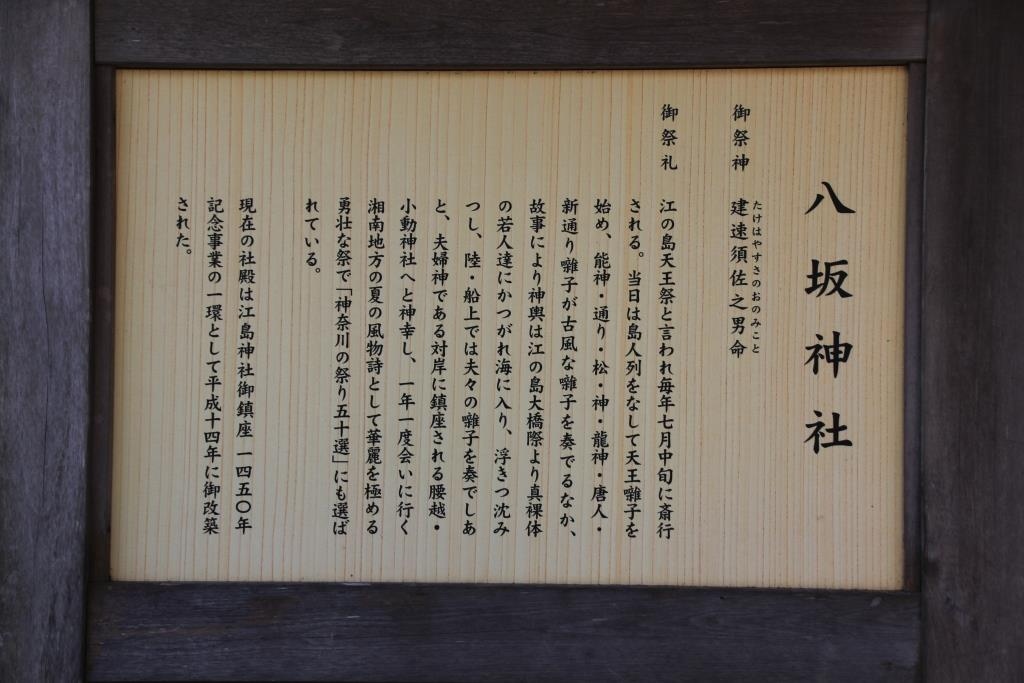 八坂神社
御祭神 建速須佐之男命
たけはやすさのおのみこと
御祭礼
江の島天王祭と言われ毎年七月中旬に斎行
される。当日は島人列をなして天王囃子を
始め、能神・通り・松・神・龍神・唐人・
新通り囃子が古風な囃子を奏でるなか、
故事により神輿は江の島大橋際より真裸体
の若人達にかつがれ海に入り、浮きつ沈み
つし、陸・船上では夫々の囃子を奏でしあ
と、夫婦神である対岸に鎮座される腰越・
小動神社へと神幸し、一年一度会いに行く
湘南地方の夏の風物詩として華麗を極める
勇壮な祭で「神奈川の祭り五十選」にも選ば
れている。
現在の社殿は江島神社御鎮座一四五〇年
記念事業の一環として平成十四年に御改築
された。